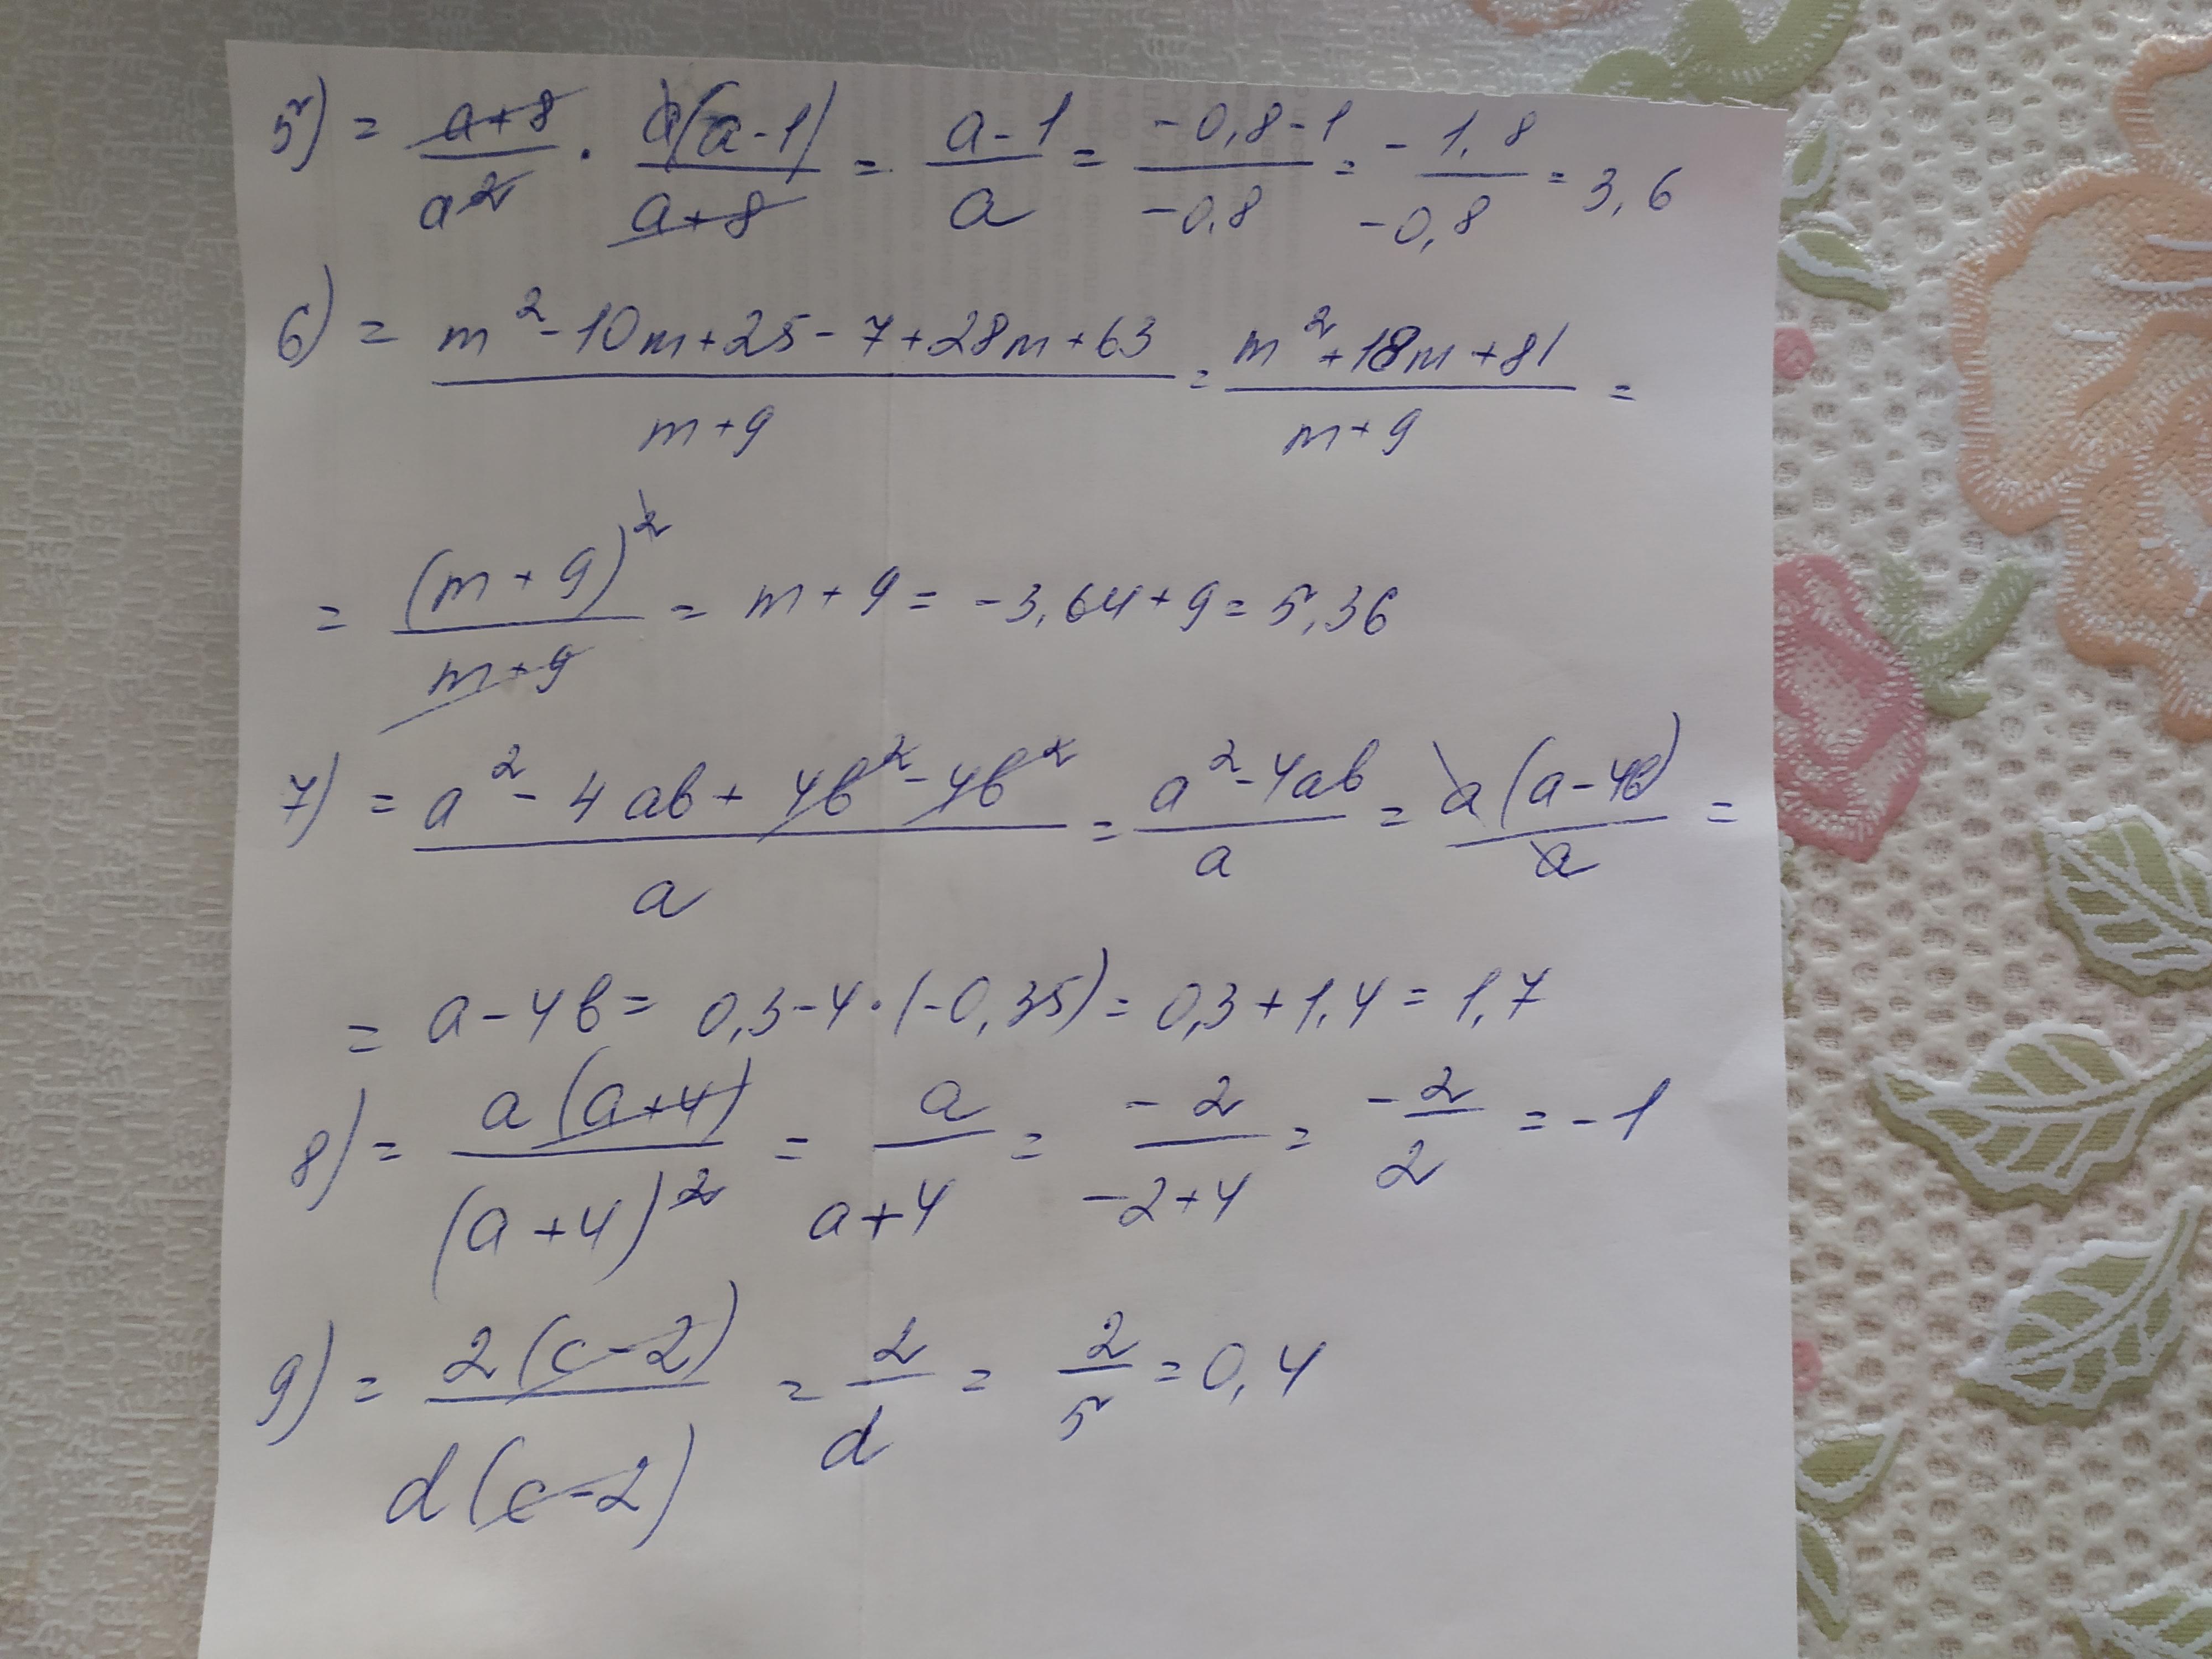 5) = a+8/a² · a(a-1)/a+8 = a-1/a = -0,8-1/-0,8 = -1,8/-0,8 = 3,6
6) = m²-10m+25-7+28m+63/m+9 = m²+18m+81/m+9 =
= (m+9)²/m+9 = m+9 = -3,64+9 = 5,36
7) = a²-4ab+4b²-4b²/a = a²-4ab/a = a(a-4b)/a =
= a-4b = 0,3-4·(-0,35) = 0,3+1,4 = 1,7
8) = a(a+4)/(a+4)² = a/a+4 = -2/-2+4 = -2/2 = -1
9) = 2(c-2)/d(c-2) = 2/d = 2/5 = 0,4